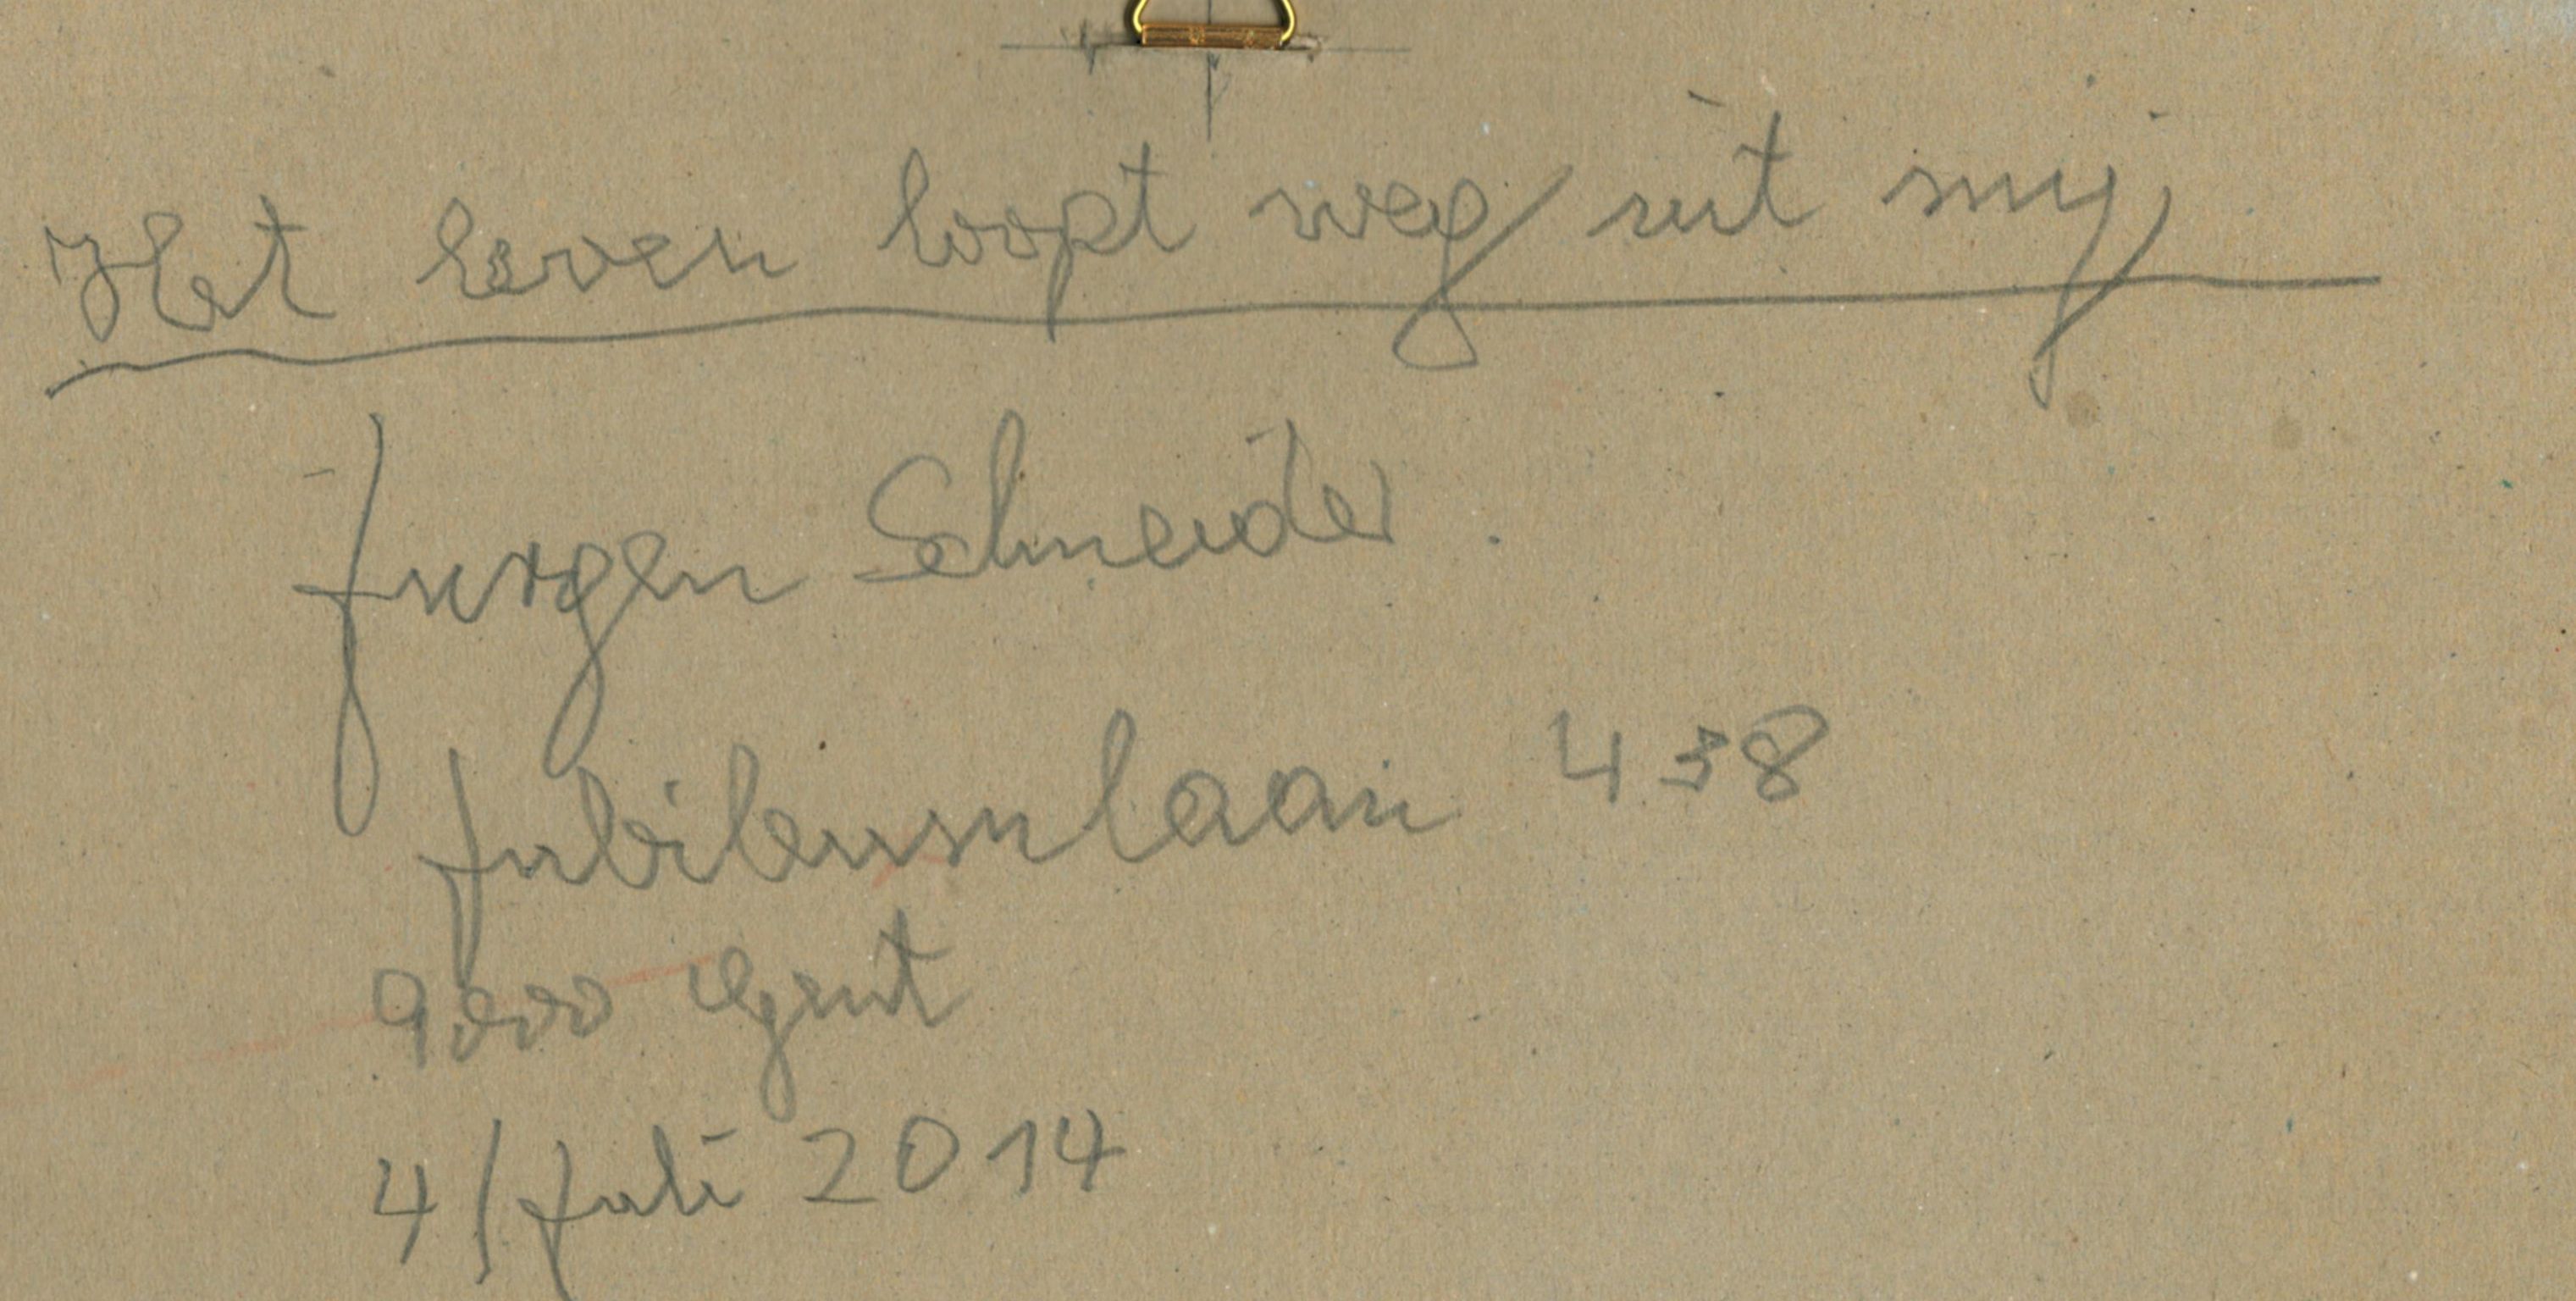 Het leven loopt weg uit mij
Jurgen Schneider
Jubileumlaan 438
9000 Gent
4/Juli 2014